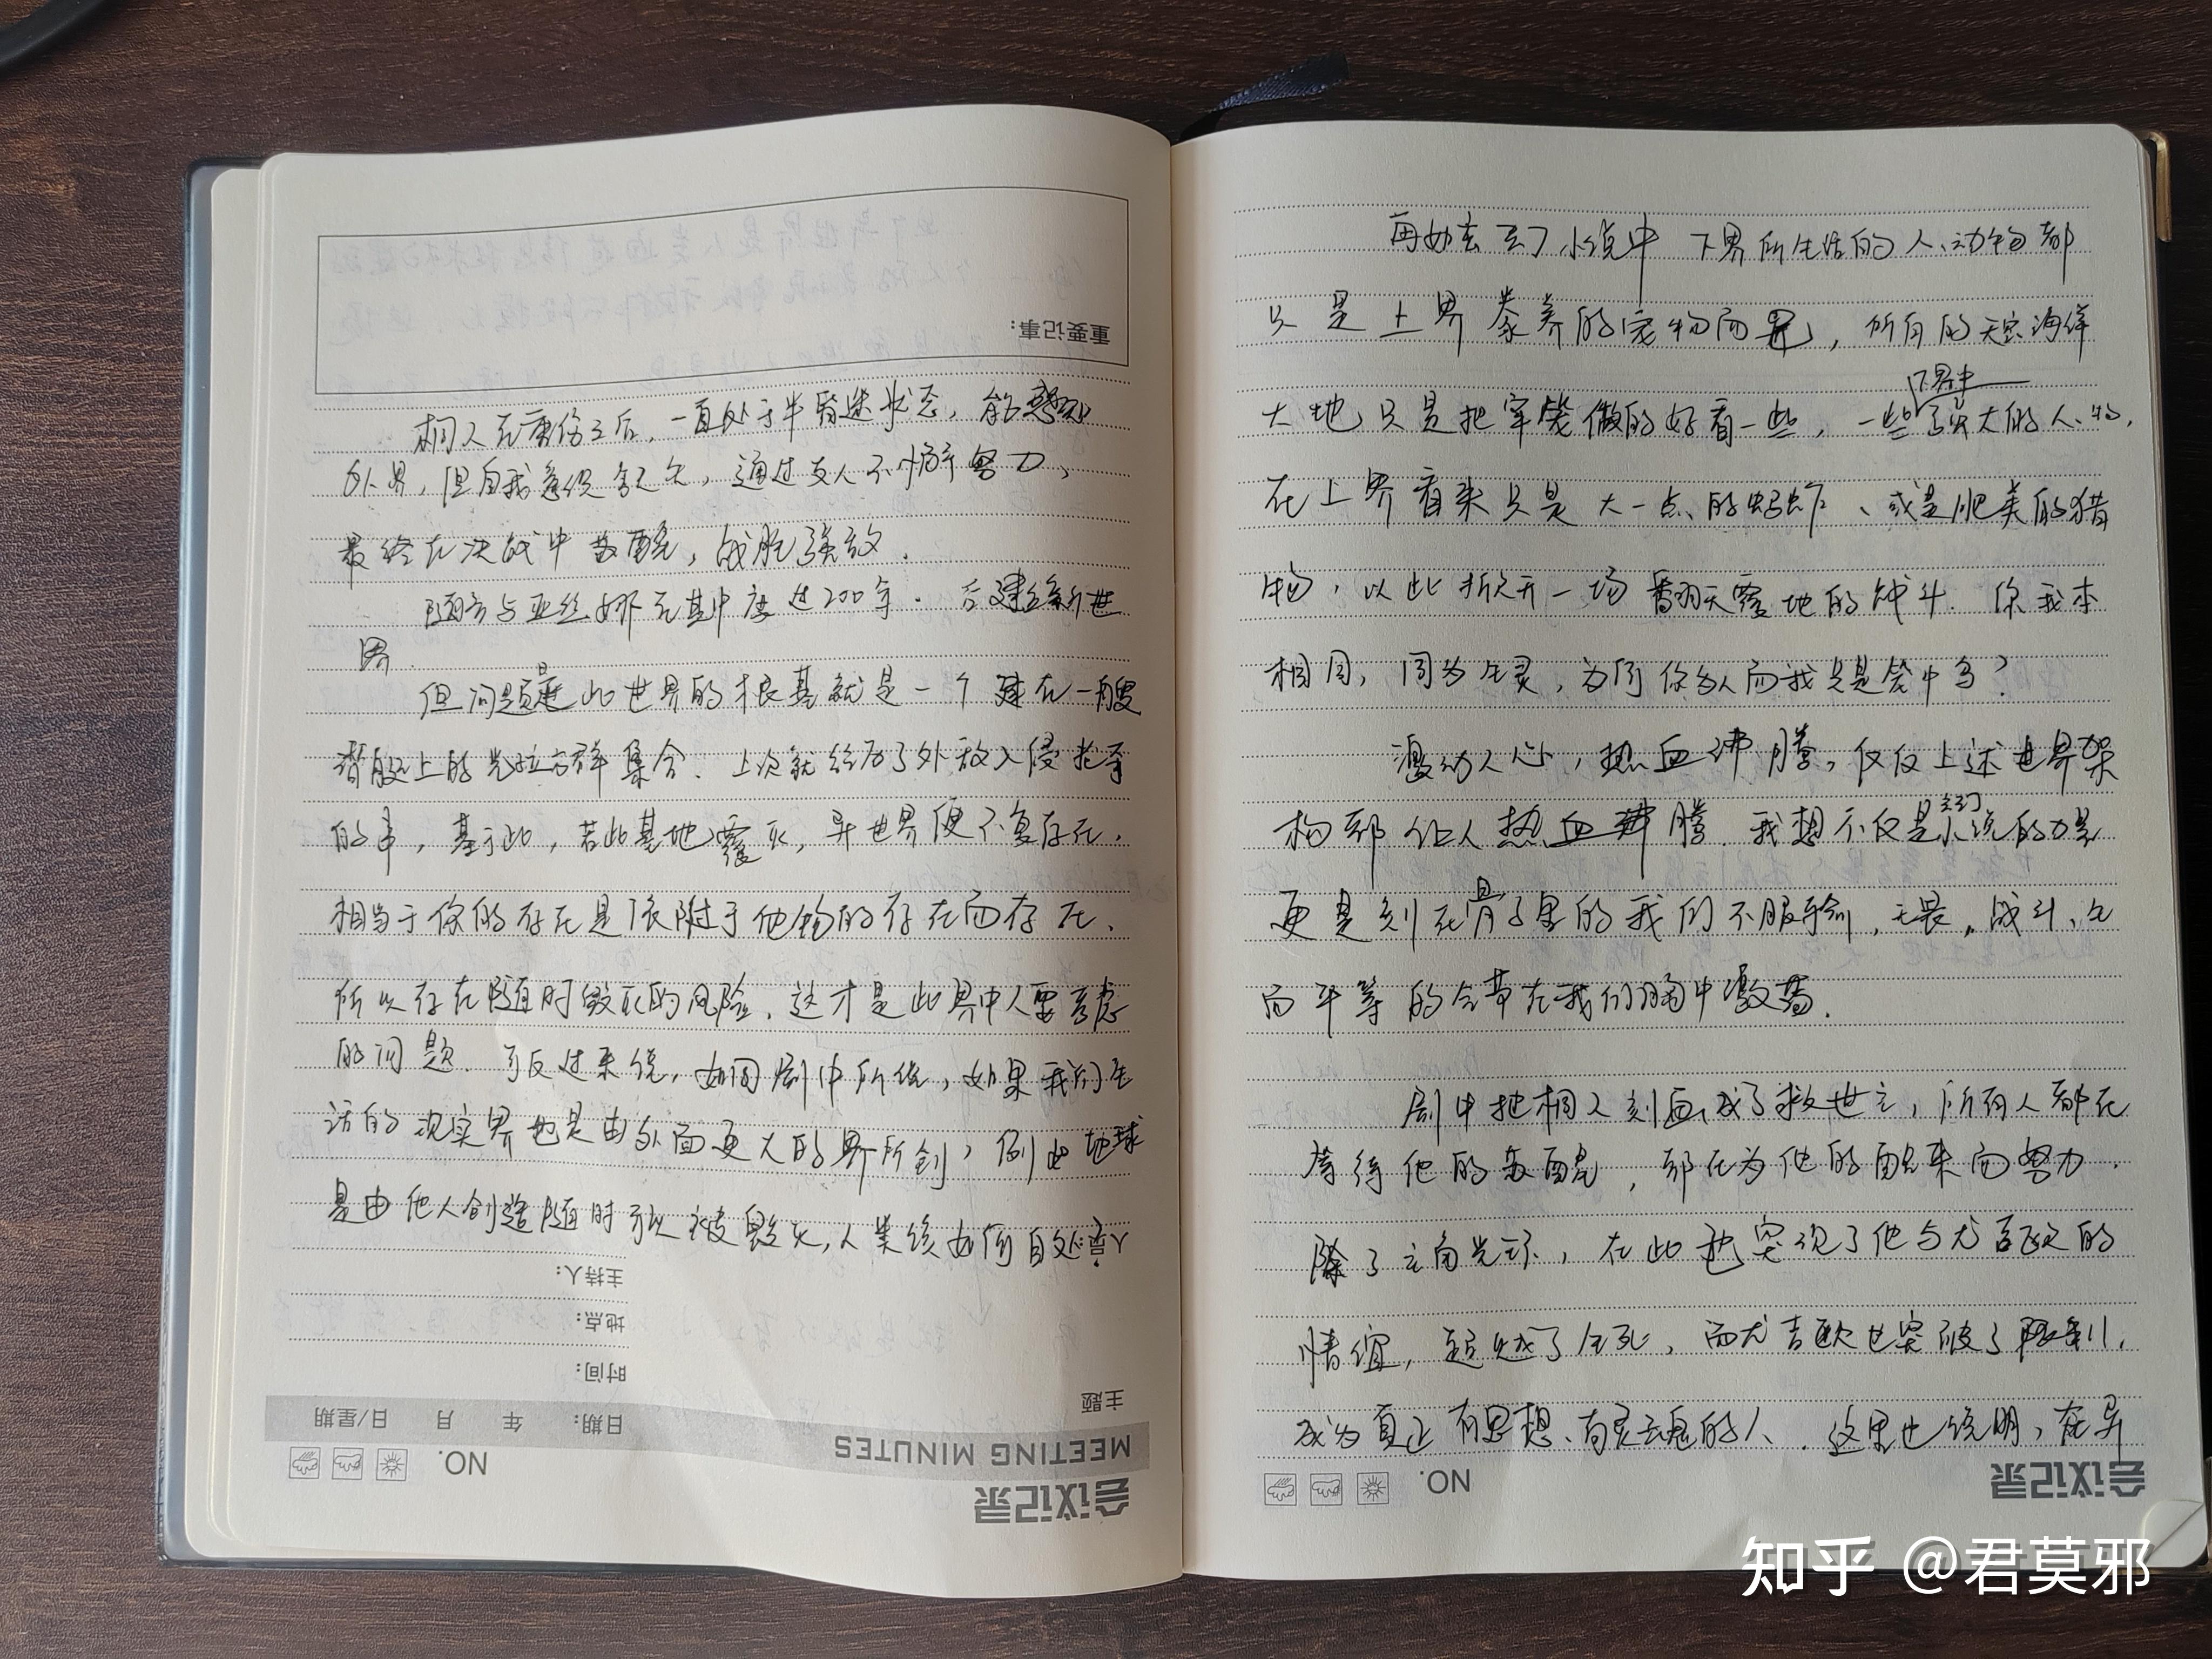 重要记事:
桐人在重伤之后，一直处于半昏迷状态，能感知
外界，但自我意识缺欠，通过友人不懈努力，
最终在决战中苏醒，战胜强敌.
随后与亚丝娜在其中度过200年. 后建立新世
界.
但问题是此世界的根基就是一个建在一艘
上的光立方群集合. 上次就经历了外敌入侵抢夺
的事，基于此，若此基地覆灭，异世界便不复存在.
相当于你的存在是依附于他物的存在而存在.
所以存在随时毁灭的风险. 这才是此界中人要考虑
的问题. 可反过来说，如同剧中所说，如果我们生
活的现实界也是由外面更大的界所创，例如地球
是由他人创造随时可以被毁灭，人类该如何自处?
人员:
主持人:
地点:
时间:
主题
日期: 年 月 日/星期
MEETING MINUTES
NO.
会议记录
再如玄幻小说中 下界所生活的人、动物都
只是上界豢养的宠物而已，所有的天空海洋
下界中
大地只是把牢笼做的好看一些，一些强大的人、物，
在上界看来只是大一点的蚂蚁、或是肥美的猎
物，以此拆开一场翻天覆地的战斗. 你我本
相同，同为生灵，为何你为人而我只是笼中鸟?
激动人心，热血沸腾，仅仅上述世界架
构都让人热血沸腾. 我想不仅是小说的力量
更是刻在骨子里的我们不服输，无畏，战斗，生
而平等的合章在我们胸中激荡.
剧中把桐人刻画成了救世主，所有人都在
等待他的苏醒，都在为他的醒来而努力.
除了主角光环，在此也突现了他与尤吉欧的
情谊，超越了生死，而尤吉欧也突破了限制，
成为真正有思想、有灵魂的人. 这里也说明，在异
NO.
会议记录
知乎 @君莫邪